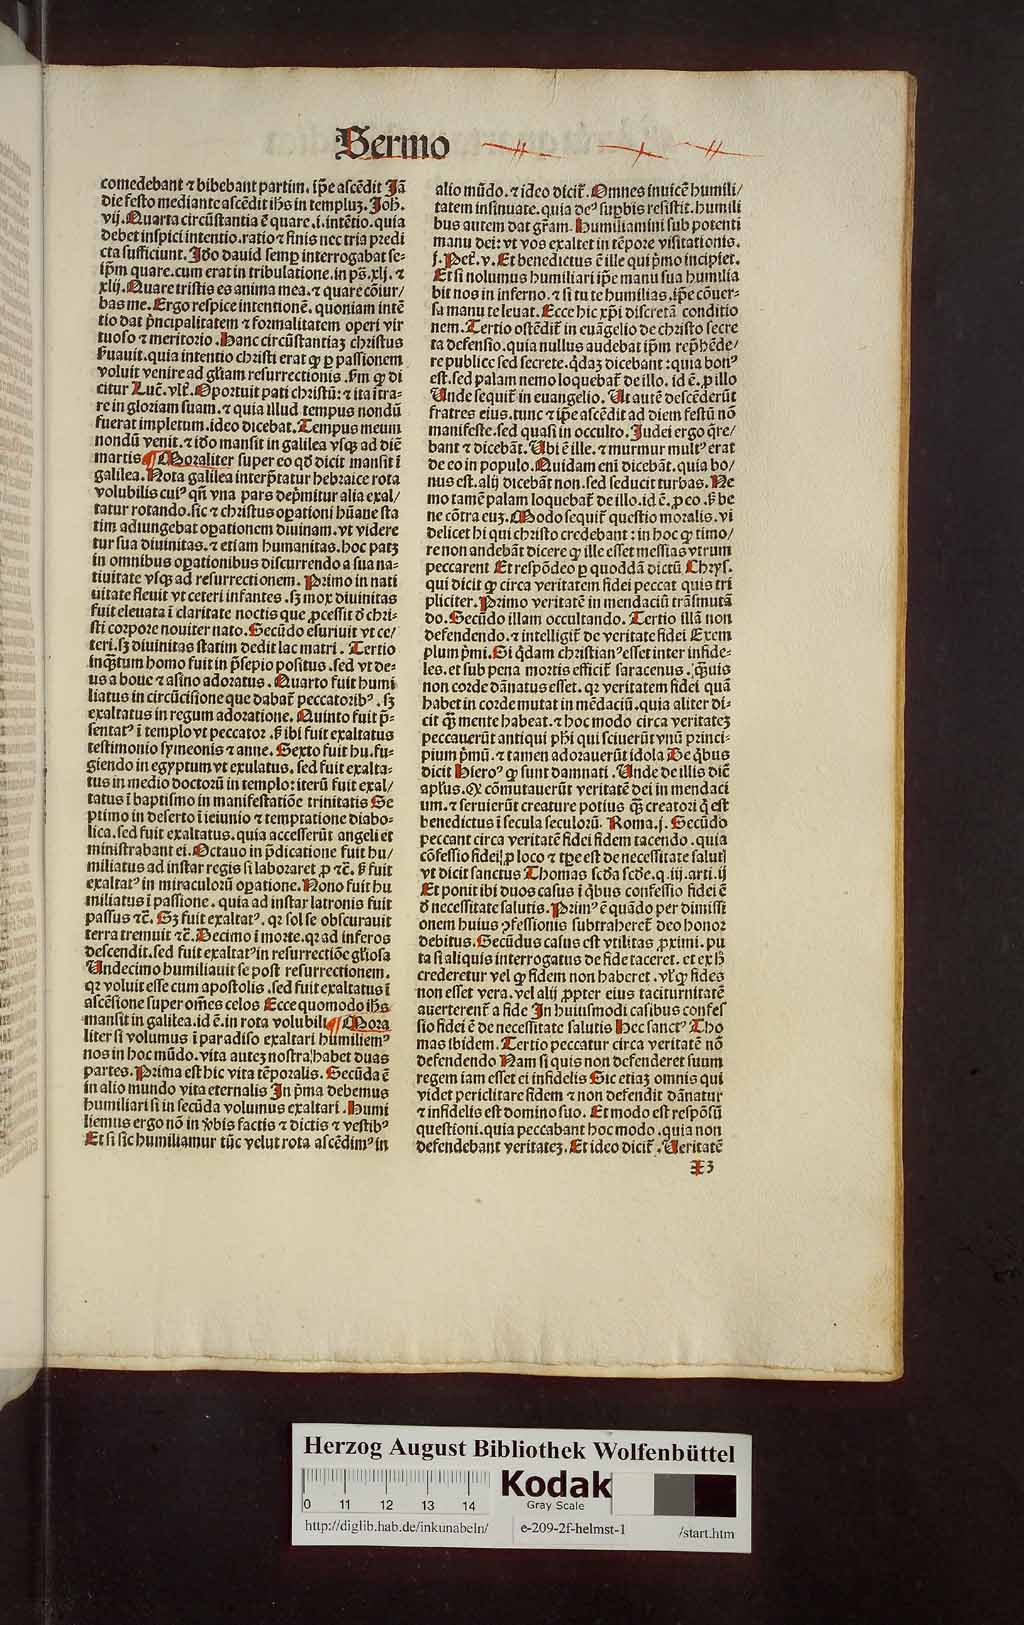 Sermo
comedebant ⁊ bibebant partim. ip̄e ascēdit Jā
die festo mediante ascēdit ih̄s in templuꝫ. Joh̄.
vij. Quarta circūstantia ē quare .i. intētio. quia
debet inspici intentio. ratio ⁊ finis nec tria predi
cta sufficiunt. Jdo dauid semꝑ interrogabat se⸗
ip̄m quare. cum erat in tribulatione. in pͣs. xlj. ⁊
xlij. Quare tristis es anima mea. ⁊ quare cōtur/
bas me. Ergo respice intentionē. quoniam intē
tio dat p̄ncipalitatem ⁊ formalitatem operi vir
tuoso ⁊ meritorio. Hanc circūstantiaꝫ christus
ẜuauit. quia intentio christi erat ꝙ ꝑ passionem
voluit venire ad gl̄iam resurrectionis. ẜm ꝙ di
citur Luc̄. vlt̄. Oportuit pati christū: ⁊ ita ītra⸗
re in gloriam suam. ⁊ quia illud tempus nondū
fuerat impletum. ideo dicebat. Tempus meum
nondū venit. ⁊ iō mansit in galilea vsqꝫ ad diē
martis ¶ Moraliter super eo qd̄ dicit mansit ī
galilea. Nota galilea interp̄tatur hebraice rota
volubilis cuiꝰ qn̄ vna pars dep̄mitur alia exal/
tatur rotando. sic ⁊ christus oꝑationi hūane sta
tim adiungebat oꝑationem diuinam. vt videre
tur sua diuinitas. ⁊ etiam humanitas. hoc patꝫ
in omnibus oꝑationibus discurrendo a sua na⸗
tiuitate vsqꝫ ad resurrectionem. Primo in nati
uitate fleuit vt ceteri infantes. sꝫ mox diuinitas
fuit eleuata ī claritate noctis que ꝓcessit d̄ chri⸗
sti corpore nouiter nato. Secūdo esuriuit vt ce/
teri. sꝫ diuinitas statim dedit lac matri. Tertio
inqͣꝫtum homo fuit in p̄sepio positus. sed vt de⸗
us a boue ⁊ asino adoratus. Quarto fuit humi
liatus in circūcisione que dabat̄ peccatoribꝰ. sꝫ
exaltatus in regum adoratione. Quinto fuit p̄⸗
sentatꝰ ī templo vt peccator. ẜ ibi fuit exaltatus
testimonio symeonis ⁊ anne. Sexto fuit hu. fu⸗
giendo in egyptum vt exulatus. sed fuit exalta⸗
tus in medio doctorū in templo: iterū fuit exal/
tatus ī baptismo in manifestatiōe trinitatis Se
ptimo in deserto ī ieiunio ⁊ temptatione diabo⸗
lica. sed fuit exaltatus. quia accesserūt angeli et
ministrabant ei. Octauo in p̄dicatione fuit hu/
miliatus ad instar regis si laboraret ꝓ ⁊c̄. ẜ fuit
exaltatꝰ in miraculorū oꝑatione. Nono fuit hu
miliatus ī passione. quia ad instar latronis fuit
passus ⁊c̄. Sꝫ fuit exaltatꝰ. qꝛ sol se obscurauit
terra tremuit ⁊c̄. Decimo ī morte. qꝛ ad inferos
descendit. sed fuit exaltatꝰ in resurrectiōe gl̄iosa
Undecimo humiliauit se post resurrectionem.
qꝛ voluit esse cum apostolis. sed fuit exaltatus ī
ascēsione super om̄es celos Ecce quomodo ih̄s
mansit in galilea. id ē. in rota volubili ¶ Mora
liter si volumus ī paradiso exaltari humiliemꝰ
nos in hoc mūdo. vita auteꝫ nostra habet duas
partes. Prima est hic vita tēporalis. Secūda ē
in alio mundo vita eternalis In p̄ma debemus
humiliari si in secūda volumus exaltari. Humi
liemus ergo nō in v̄bis factis ⁊ dictis ⁊ vestibꝰ
Et si sic humiliamur tūc velut rota ascēdimꝰ in
alio mūdo. ⁊ ideo dicit̄. Omnes inuicē humili/
tatem insinuate. quia deꝰ suꝑbis resistit. humili
bus autem dat gr̄am. Humiliamini sub potenti
manu dei: vt vos exaltet in tēpore visitationis.
j. Pet̄. v. Et benedictus ē ille qui p̄mo incipiet.
Et si nolumus humiliari ip̄e manu sua humilia
bit nos in inferno. ⁊ si tu te humilias. ip̄e cōuer⸗
sa manu te leuat. Ecce hic xp̄i discretā conditio
nem. Tertio ostēdit̄ in euāgelio de christo secre
ta defensio. quia nullus audebat ip̄m rep̄hēde/
re publice sed secrete. q̇daꝫ dicebant: quia bonꝰ
est. sed palam nemo loquebat̄ de illo. id ē. ꝓ illo
Unde sequit̄ in euangelio. Ut autē descēderūt
fratres eius. tunc ⁊ ip̄e ascēdit ad diem festū nō
manifeste. sed quasi in occulto. Judei ergo q̄re/
bant ⁊ dicebāt. Ubi ē ille. ⁊ murmur multꝰ erat
de eo in populo. Quidam eni dicebāt. quia bo/
nus est. alij dicebant non. sed seducit turbas. Ne
mo tamē palam loquebat̄ de illo. id ē. ꝓ eo. ẜ be
ne cōtra euꝫ. Modo sequit̄ questio moralis. vi
delicet hi qui christo credebant: in hoc ꝙ timo/
re non audebāt dicere ꝙ ille esset messias vtrum
peccarent Et respōdeo ꝑ quoddā dictū Chrys̄.
qui dicit ꝙ circa veritatem fidei peccat quis tri
pliciter. Primo veritatē in mendaciū trāsmutā
do. Secūdo illam occultando. Tertio illā non
defendendo. ⁊ intelligit̄ de veritate fidei Exem
plum p̄mi. Si q̇dam christianꝰ esset inter infide⸗
les. et sub pena mortis efficit̄ saracenus. qͣꝫuis
non corde dānatus esset. qꝛ veritatem fidei quā
habet in corde mutat in mēdaciū. quia aliter di⸗
cit qͣꝫ mente habeat. ⁊ hoc modo circa veritateꝫ
peccauerūt antiqui ph̄i qui sciuerūt vnū princi⸗
pium p̄mū. ⁊ tamen adorauerūt idola De q̇bus
dicit Hieroꝰ ꝙ sunt damnati. Unde de illis diē
apl̄us. Qꝛ cōmutauerūt veritatē dei in mendaci
um. ⁊ seruierūt creature potius qͣꝫ creatori q̇ est
benedictus ī secula seculorū. Roma. j. Secūdo
peccant circa veritatē fidei fidem tacendo. quia
cōfessio fidei ꝓ loco ⁊ tp̄e est de necessitate salut̄
vt dicit sanctus Thomas scd̄a scd̄e. q. iij. arti. ij
Et ponit ibi duos casus ī q̇bus confessio fidei ē
d̄ necessitate salutis. Primꝰ ē quādo per dimissi
onem huius ꝯfessionis subtraheret̄ deo honor
debitus. Secūdus casus est vtilitas ꝓximi. pu
ta si aliquis interrogatus de fide taceret. et ex h̄
crederetur vel ꝙ fidem non haberet. vl̄ ꝙ fides
non esset vera. vel alij ꝓpter eius taciturnitatē
auerterent̄ a fide In huiusmodi casibus confes
sio fidei ē de necessitate salutis Hec sanctꝰ Tho
mas ibidem. Tertio peccatur circa veritatē nō
defendendo Nam si quis non defenderet suum
regem iam esset ei infidelis Sic etiaꝫ omnis qui
videt periclitare fidem ⁊ non defendit dānatur
⁊ infidelis est domino suo. Et modo est respōsū
questioni. quia peccabant hoc modo. quia non
defendebant veritateꝫ. Et ideo dicit̄. Veritatē
X3
Herzog August Bibliothek Wolfenbüttel
Kodak
Gray Scale
0 11 12 13 14
http://diglib.hab.de/inkunabeln/ e-209-2f-helmst-1 /start.htm